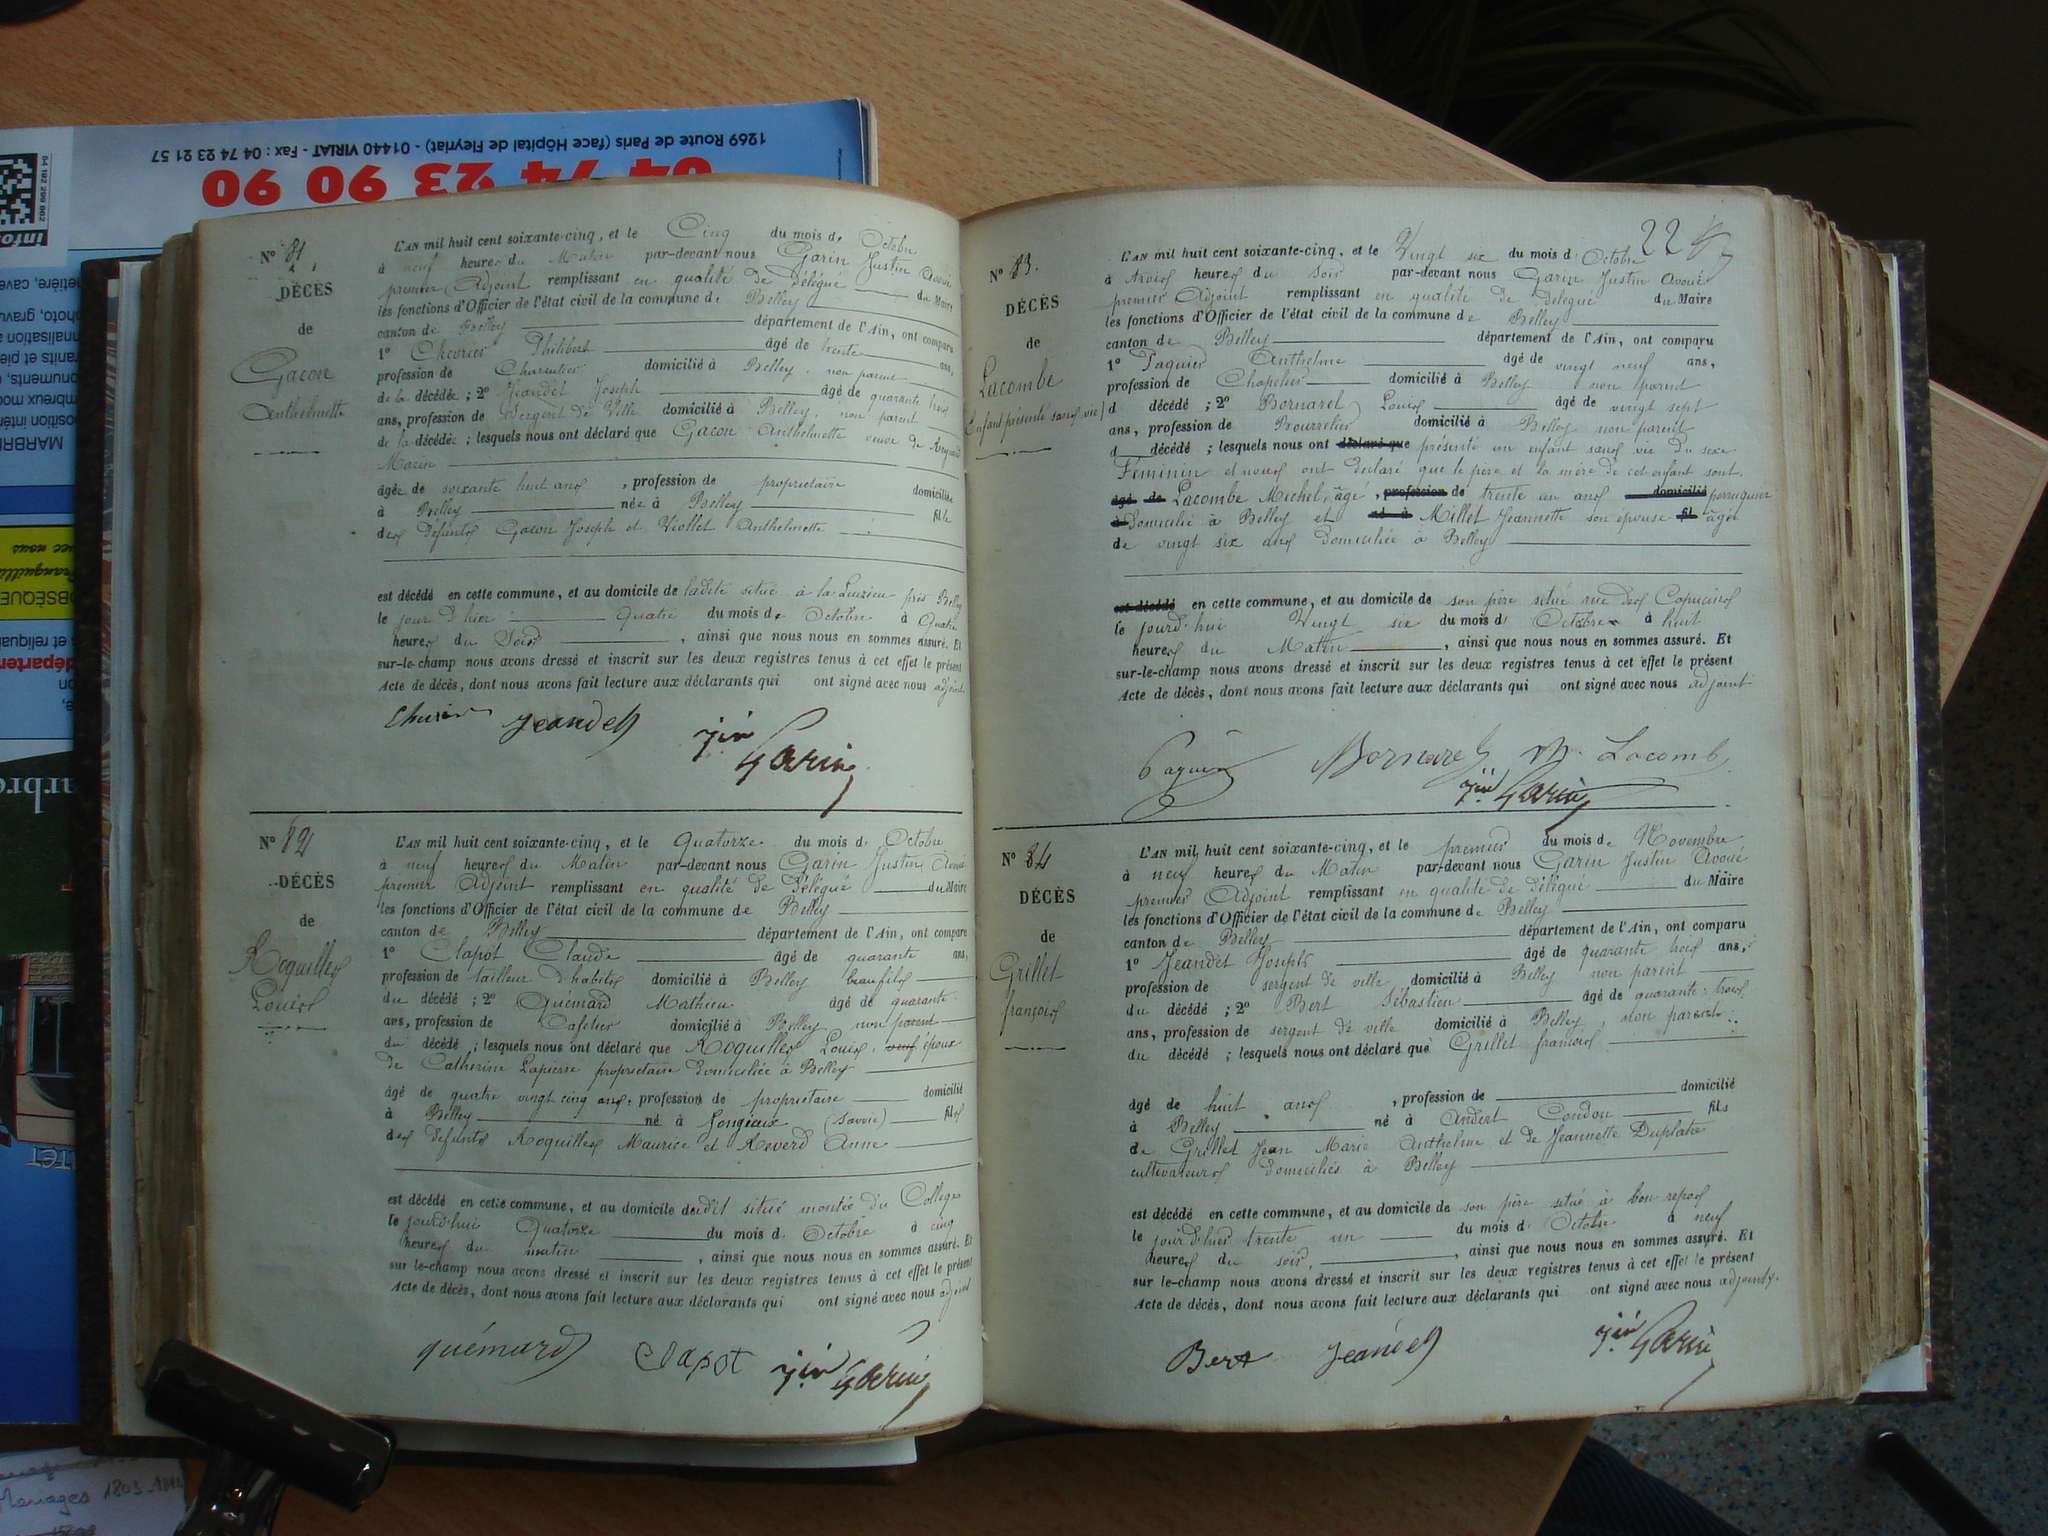 1269 Route de Paris (face Hôpital de Fleyriat) - 01440 VIRIAT - Fax : 04 74 23 21 57
04 74 23 90 90
N° 81
DÉCÈS
de
Gacon
Anthelmette
L'AN mil huit cent soixante-cinq, et le Cinq du mois de Octobre
à neuf heures du Matin par-devant nous Garin Justin Avoué
premier Adjoint remplissant en qualité de Délégué du Maire
les fonctions d'Officier de l'état civil de la commune de Belley
canton de Belley département de l'Ain, ont comparu
1° Chevrier Philibert âgé de trente ans,
profession de Charcutier domicilié à Belley, non parent
de la décédée ; 2° Jeandet Joseph âgé de quarante huit
ans, profession de Sergent de Ville domicilié à Belley, non parent
de la décédée ; lesquels nous ont déclaré que Gacon Anthelmette veuve de
Marin
âgée de soixante huit ans, profession de propriétaire domiciliée
à Belley née à Belley fille
des défunts Gacon Joseph et Viollet Anthelmette
est décédé en cette commune, et au domicile de ladite situé à la près Belley
le jour d'hier quatre du mois de Octobre à Quatre
heures du Soir, ainsi que nous nous en sommes assuré. Et
sur-le-champ nous avons dressé et inscrit sur les deux registres tenus à cet effet le présent
Acte de décès, dont nous avons fait lecture aux déclarants qui ont signé avec nous adjoint
Jeandet
Jin Garin
N° 82
DÉCÈS
de
Roquilles
Louis
L'AN mil huit cent soixante-cinq, et le Quatorze du mois d Octobre
à neuf heures du Matin par-devant nous Garin Justin Avoué
premier Adjoint remplissant en qualité de Délégué du Maire
les fonctions d'Officier de l'état civil de la commune de Belley
canton de Belley département de l'Ain, ont comparu
1° Clapot Claude âgé de quarante ans,
profession de tailleur d'habits domicilié à Belley beaufils
du décédé ; 2° Quémard Mathieu âgé de quarante
ans, profession de Cafetier domicilié à Belley non parent
du décédé ; lesquels nous ont déclaré que Roquilles Louis, veuf époux
de Catherine Lapierre propriétaire domiciliée à Belley
âgé de quatre vingt cinq ans, profession de propriétaire domicilié
à Belley né à Jongieux (Savoie) fils
des défunts Roquilles Maurice et Reverd Anne
est décédé en cette commune, et au domicile dudit situé montée du College
le jourd'hui Quatorze du mois d Octobre à cinq
heures du matin, ainsi que nous nous en sommes assuré. Et
sur le-champ nous avons dressé et inscrit sur les deux registres tenus à cet effet le présent
Acte de décès, dont nous avons fait lecture aux déclarants qui ont signé avec nous adjoint
Quémard Clapot Jin Garin
22
N° 83.
DÉCÈS
de
Lacombe
Enfant présenté sans vie
L'AN mil huit cent soixante-cinq, et le Vingt six du mois d Octobre
à trois heures du Soir par-devant nous Garin Justin Avoué
premier Adjoint remplissant en qualité de Délégué du Maire
les fonctions d'Officier de l'état civil de la commune de Belley
canton de Belley département de l'Ain, ont comparu
1° Paquier Anthelme âgé de vingt neuf ans,
profession de Chapelier domicilié à Belley non parent
d décédé ; 2° Bornarel Louis âgé de vingt sept
ans, profession de Bourrelier domicilié à Belley non parent
d décédé ; lesquels nous ont déclaré que présenté un enfant sans vie du sexe
Féminin et nous ont déclaré que le père et la mère de cet enfant sont
âgé de Lacombe Michel, âgé, profession de trente un ans domicilié perruquier
à domicilié à Belley et né à Millet Jeannette son épouse fil âgée
de vingt six ans domiciliée à Belley
est décédé en cette commune, et au domicile de son père situé rue des Capucins
le jourd'hui Vingt six du mois d Octobre à huit
heures du Matin, ainsi que nous nous en sommes assuré. Et
sur-le-champ nous avons dressé et inscrit sur les deux registres tenus à cet effet le présent
Acte de décès, dont nous avons fait lecture aux déclarants qui ont signé avec nous adjoint
Paquier Bornarel M. Lacombe
Jin Garin
N° 84
DÉCÈS
de
Grillet
françois
L'AN mil huit cent soixante-cinq, et le premier du mois de Novembre
à neuf heures du Matin par-devant nous Garin Justin Avoué
premier Adjoint remplissant en qualité de délégué du Maire
les fonctions d'Officier de l'état civil de la commune de Belley
canton de Belley département de l'Ain, ont comparu
1° Jeandet Joseph âgé de quarante huit ans,
profession de sergent de ville domicilié à Belley non parent
du décédé ; 2° Bert Sébastien âgé de quarante trois
ans, profession de sergent de ville domicilié à Belley, non parent
du décédé ; lesquels nous ont déclaré que Grillet françois
âgé de huit ans, profession de domicilié
à Belley né à Andert Condon fils
de Grillet Jean Marie Anthelme et de Jeannette Duplatre
cultivateurs domiciliés à Belley
est décédé en cette commune, et au domicile de son père situé à bon repos
le jourd'hier trente un du mois d Octobre à neuf
heures du soir, ainsi que nous nous en sommes assuré. Et
sur le-champ nous avons dressé et inscrit sur les deux registres tenus à cet effet le présent
Acte de décès, dont nous avons fait lecture aux déclarants qui ont signé avec nous adjoint.
Bert Jeandet Jin Garin
Mariages 1803-